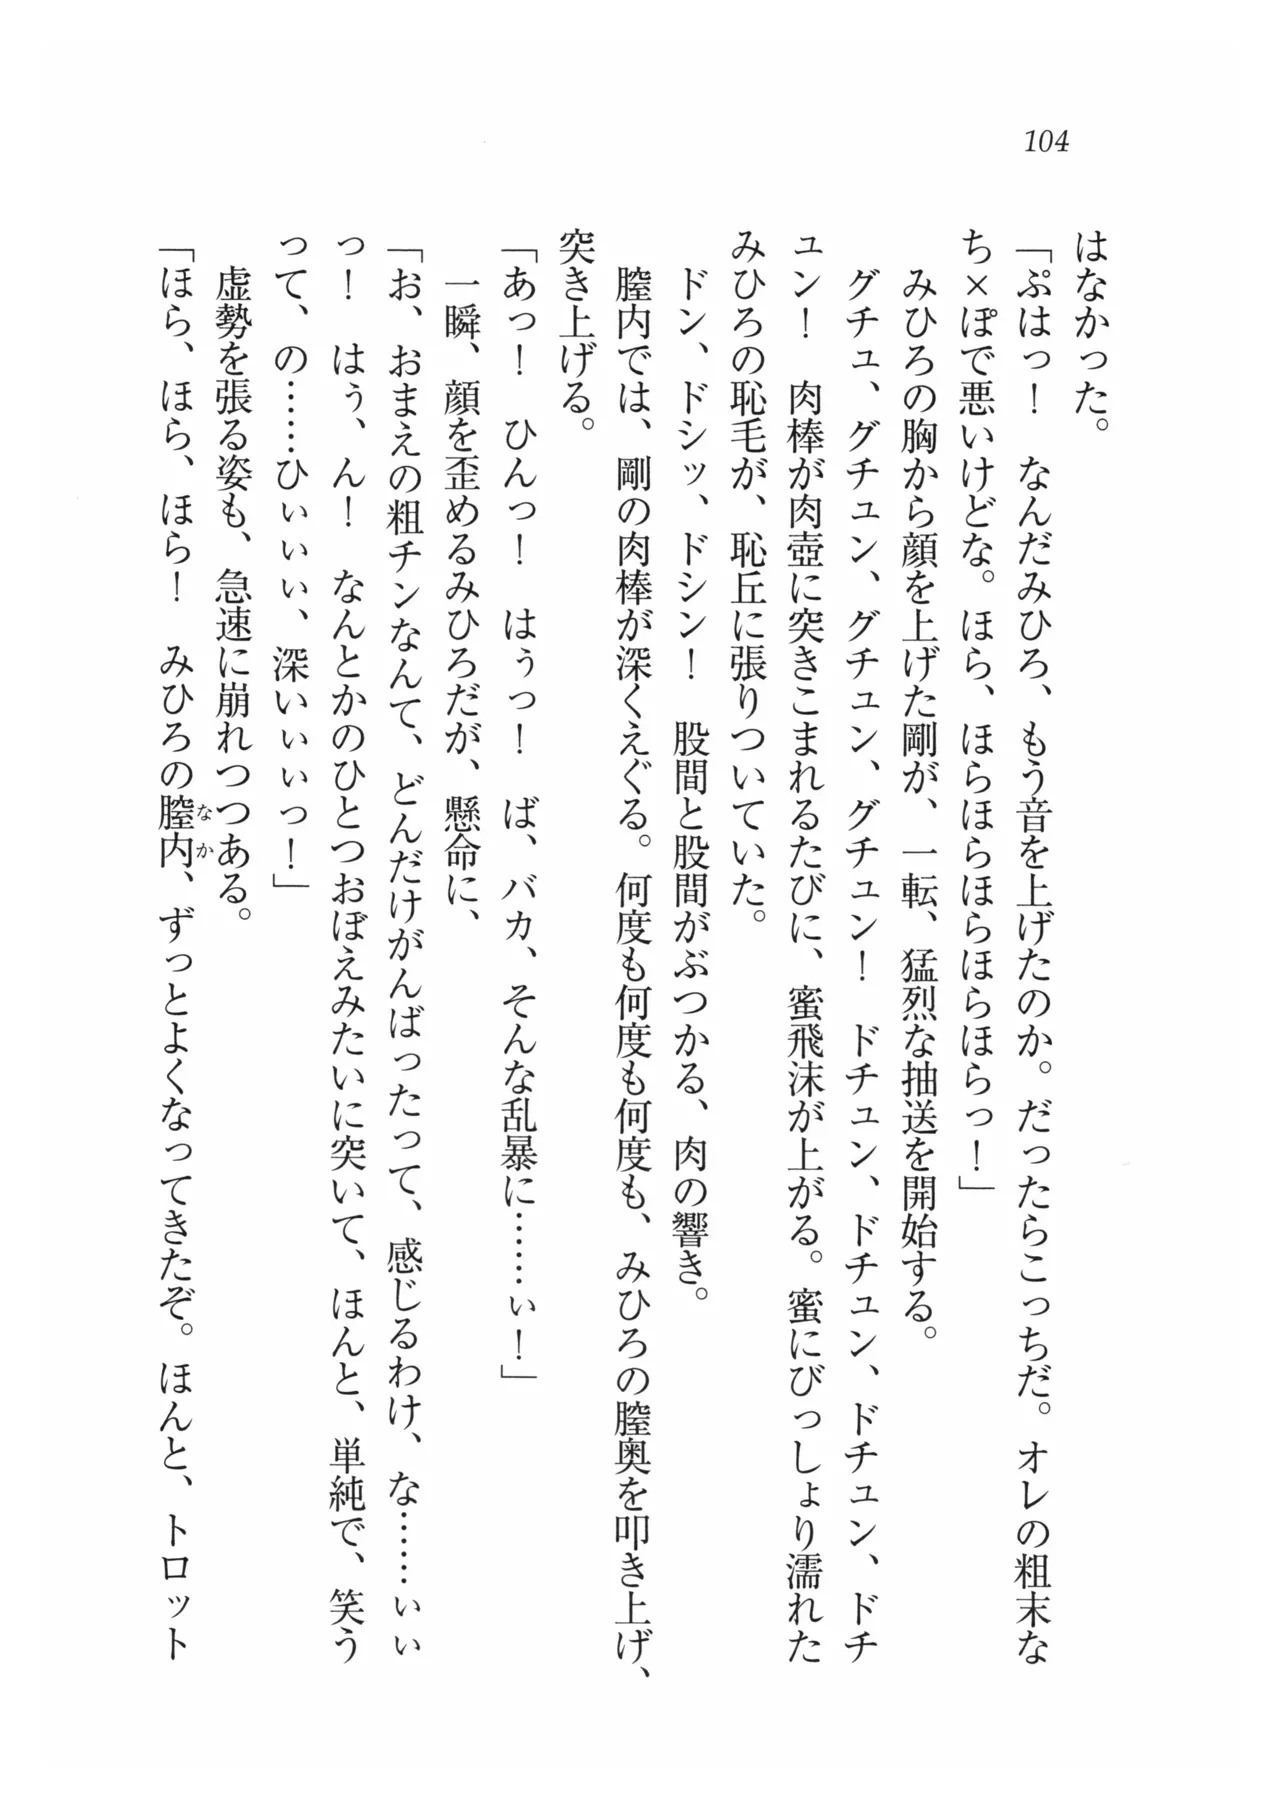 104
はなかった。
「ぷはっ！　なんだみひろ、もう音を上げたのか。だったらこっちだ。オレの粗末な
ち×ぽで悪いけどな。ほら、ほらほらほらほらほらっ！」
みひろの胸から顔を上げた剛が、一転、猛烈な抽送を開始する。
グチュ、グチュン、グチュン、グチュン！　ドチュン、ドチュン、ドチュン、ドチ
ュン！　肉棒が肉壺に突きこまれるたびに、蜜飛沫が上がる。蜜にびっしょり濡れた
みひろの恥毛が、恥丘に張りついていた。
ドン、ドシッ、ドシン！　股間と股間がぶつかる、肉の響き。
膣内では、剛の肉棒が深くえぐる。何度も何度も何度も、みひろの膣奥を叩き上げ、
突き上げる。
「あっ！　ひんっ！　はぅっ！　ば、バカ、そんな乱暴に……ぃ！」
一瞬、顔を歪めるみひろだが、懸命に、
「お、おまえの粗チンなんて、どんだけがんばったって、感じるわけ、な……ぃぃ
っ！　はぅ、ん！　なんとかのひとつおぼえみたいに突いて、ほんと、単純で、笑う
って、の……ひぃぃぃ、深いぃぃっ！」
虚勢を張る姿も、急速に崩れつつある。
「ほら、ほら、ほら！　みひろの膣内（なか）、ずっとよくなってきたぞ。ほんと、トロット